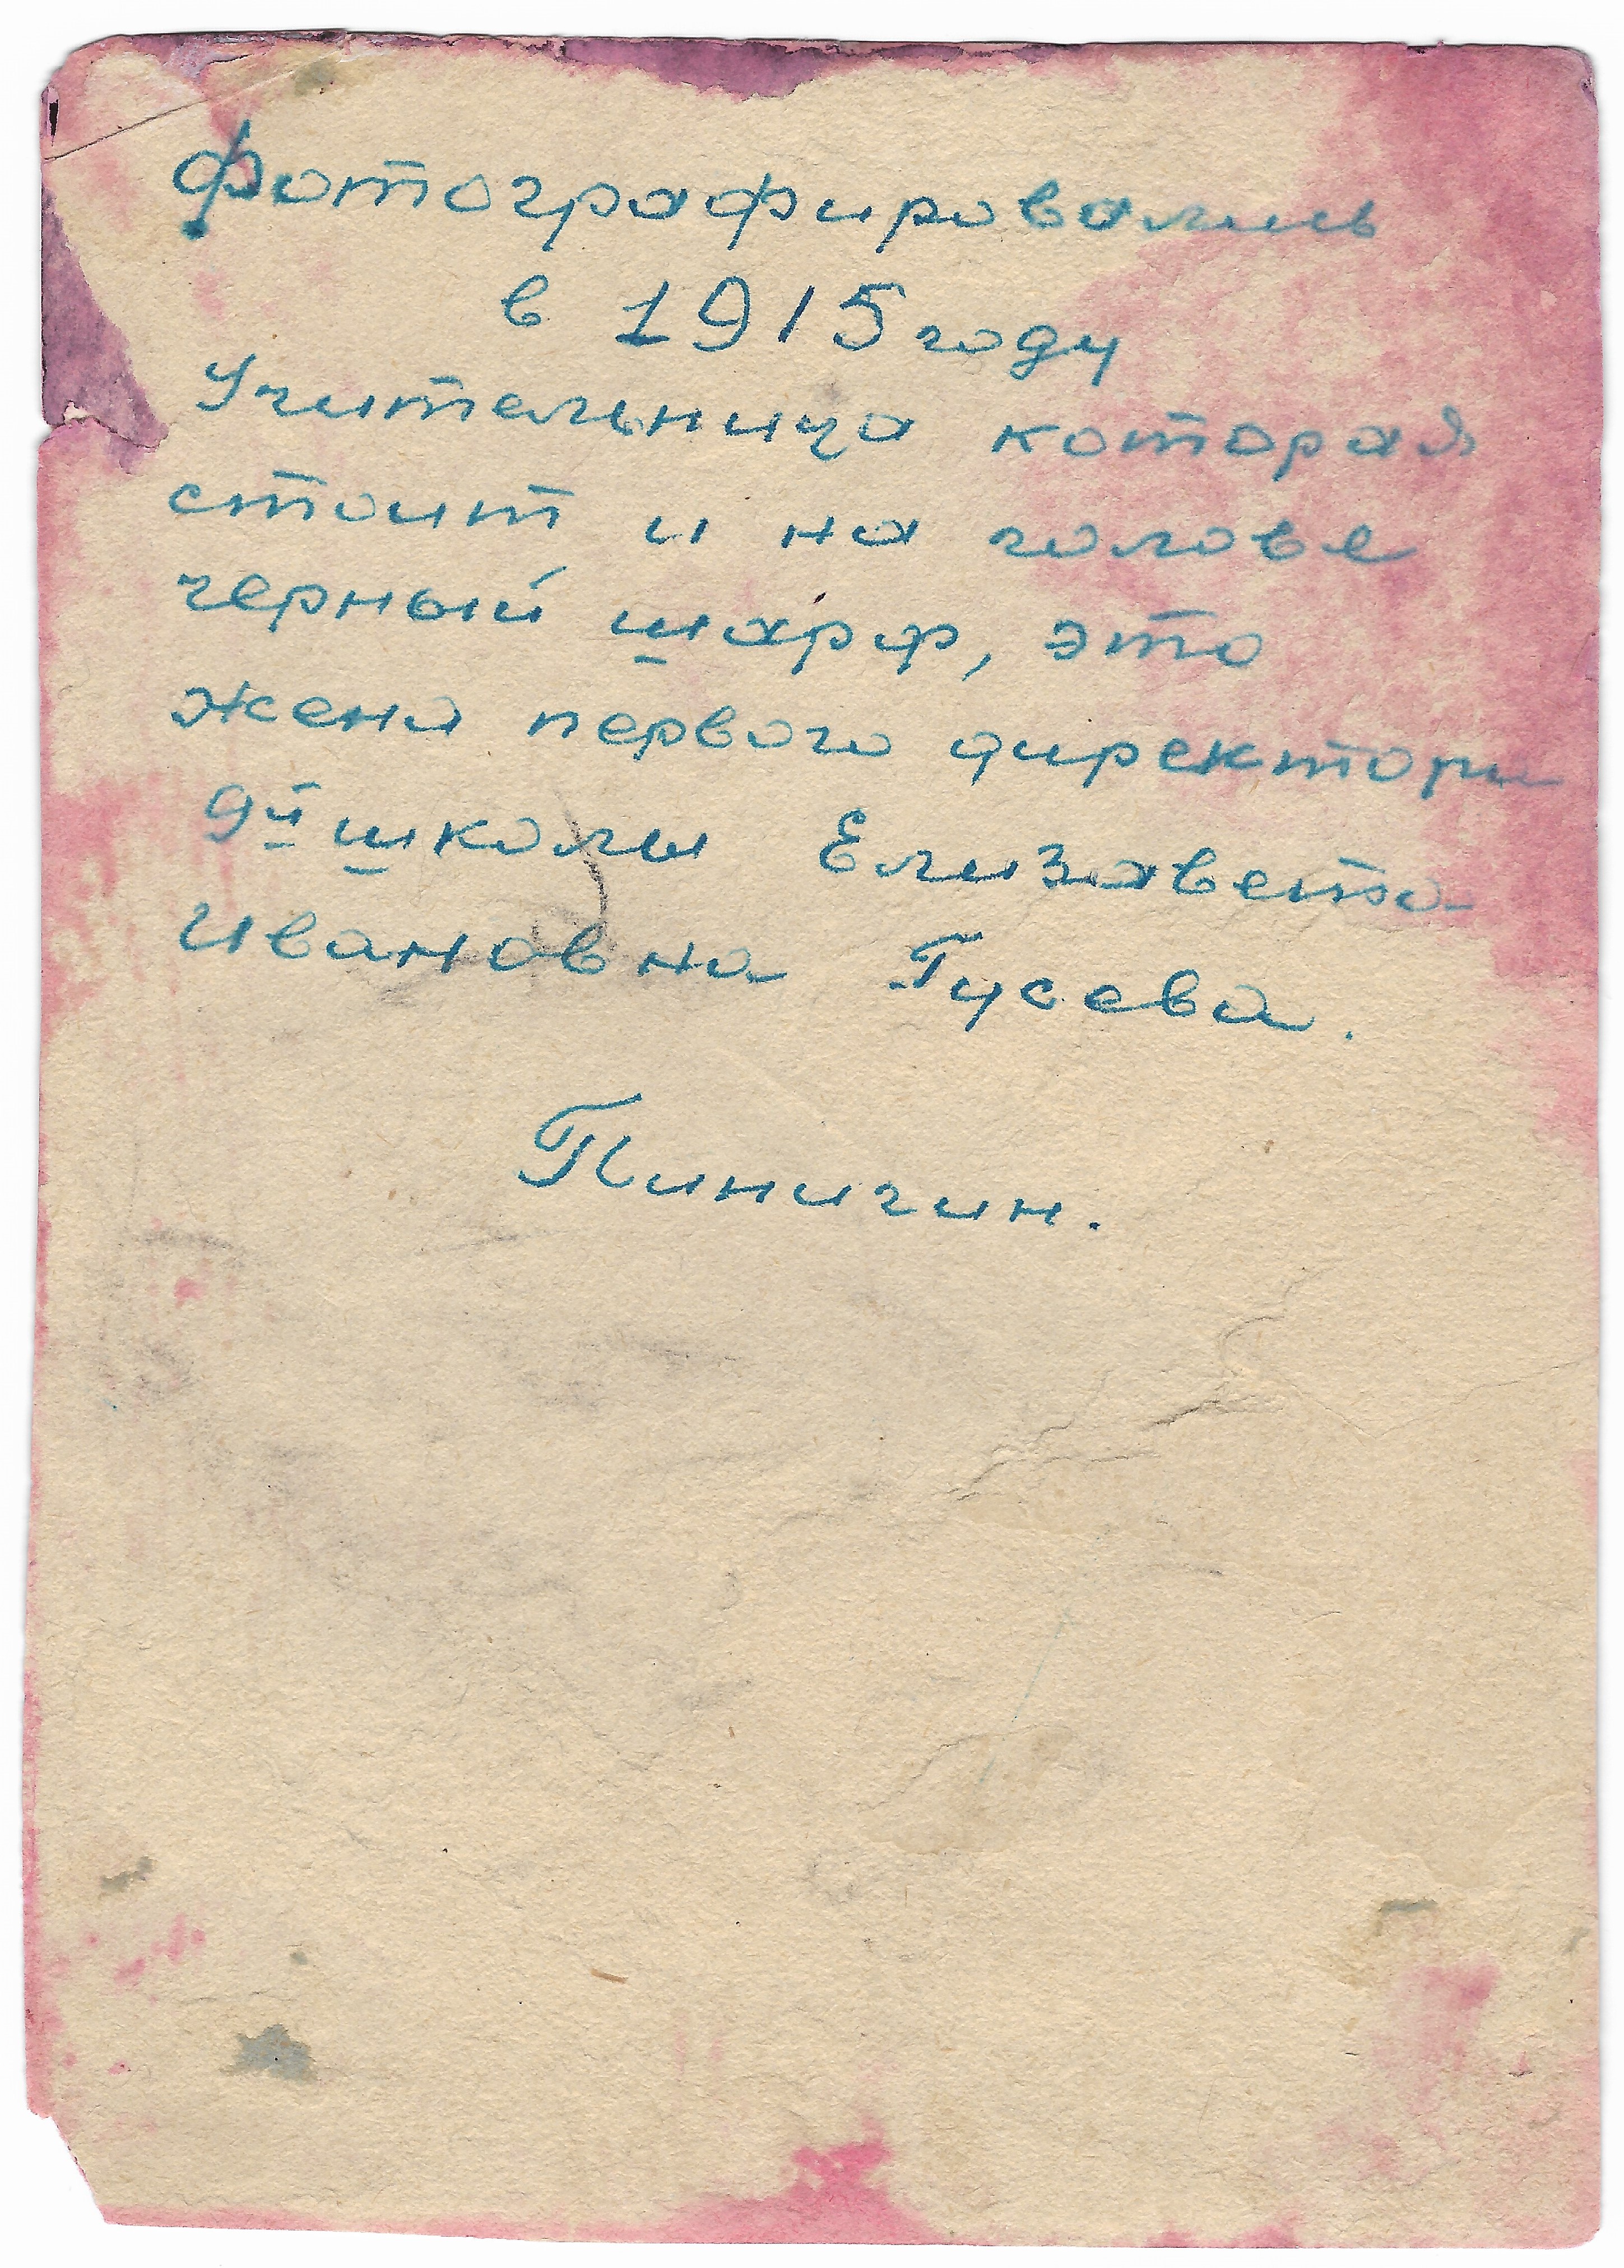 Фотографировались
в 1915 году
Учительница которая
стоит и на голове
черный шарф, это
жена первого директора
9й школы Елизавета
Ивановна Гусева.
Пинигин.